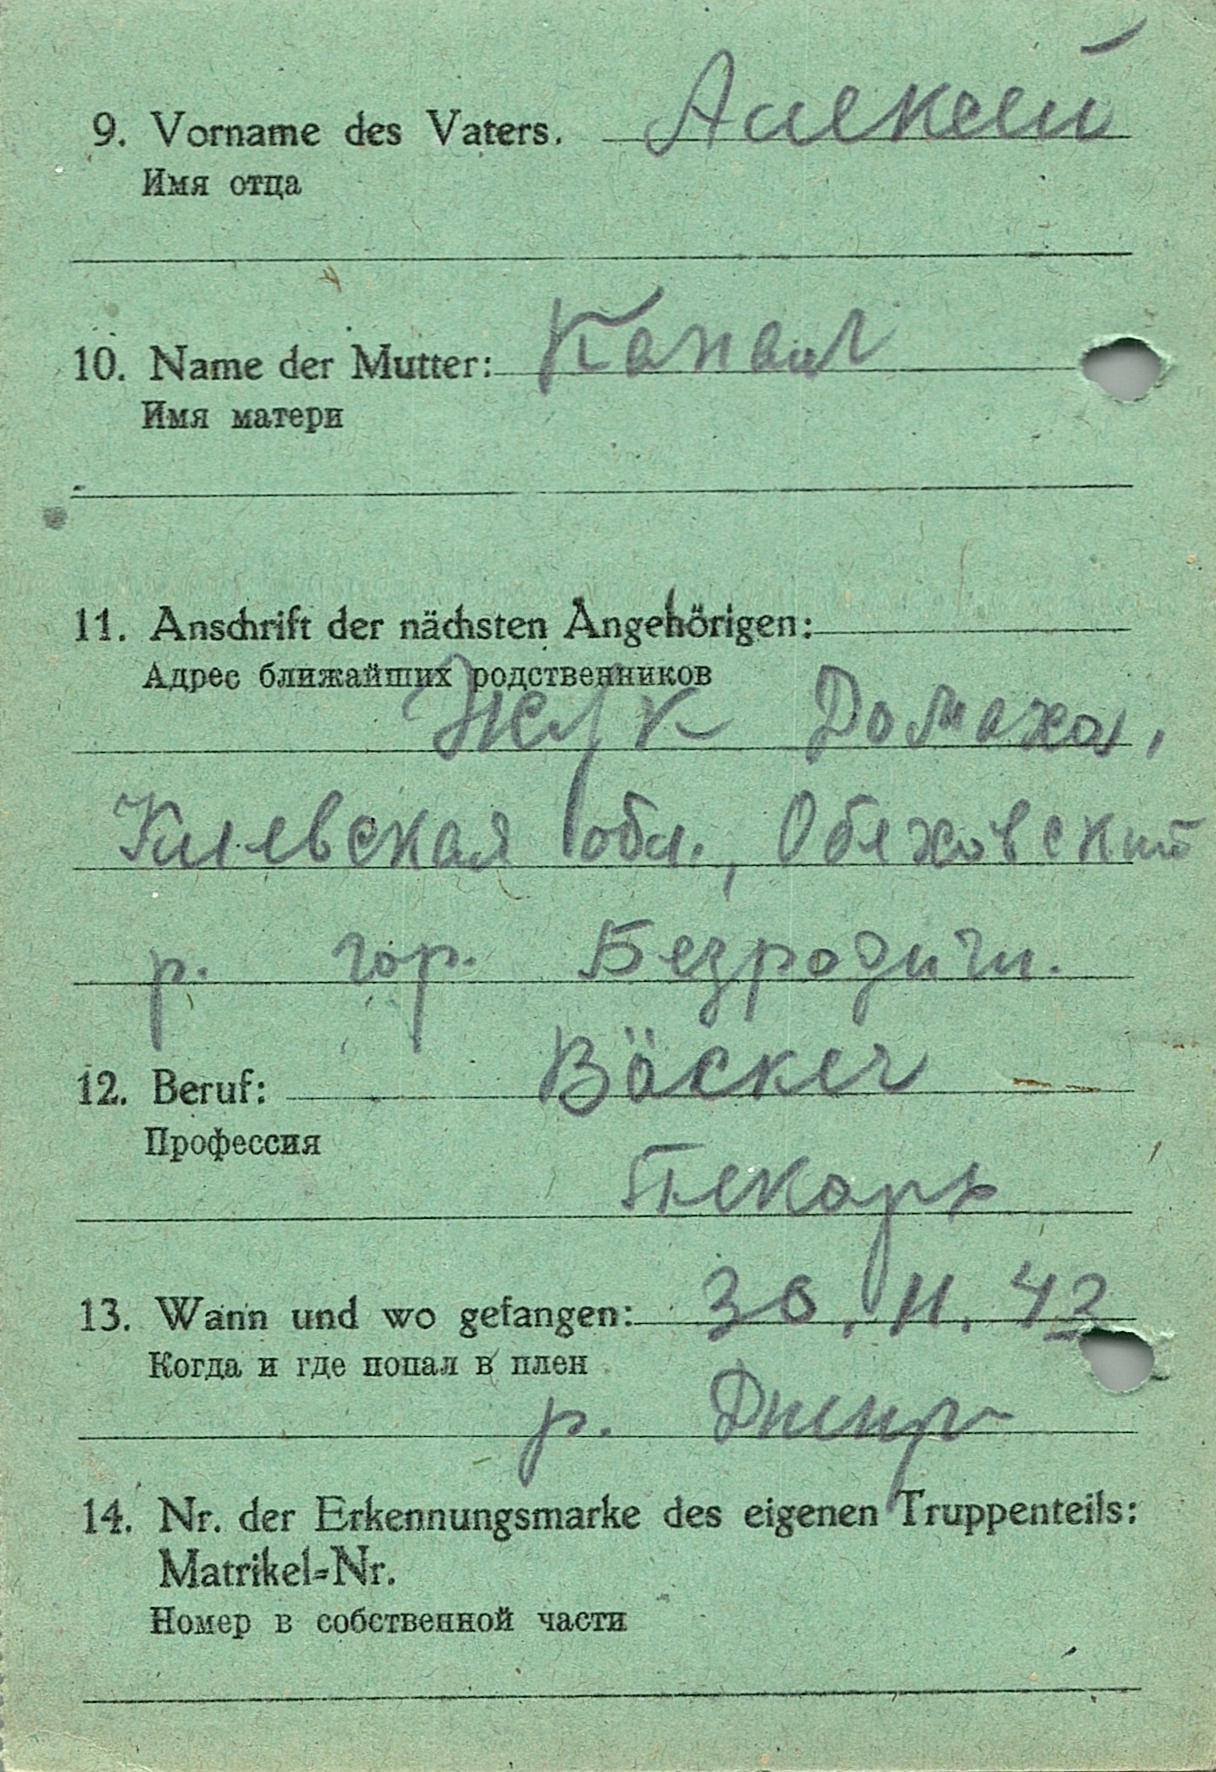 9. Vorname des Vaters. Алексей
Имя отца
10. Name der Mutter: Канал
Имя матери
11. Anschrift der nächsten Angehörigen:
Адрес ближайших родственников
Домаха,
Киевская обл., Обуховский
р. гор. Безродичи.
12. Beruf: Bäcker
Профессия
Пекарь
13. Wann und wo gefangen: 30. 11. 43
Когда и где попал в плен
р. Днепр
14. Nr. der Erkennungsmarke des eigenen Truppenteils:
Matrikel=Nr.
Номер в собственной части